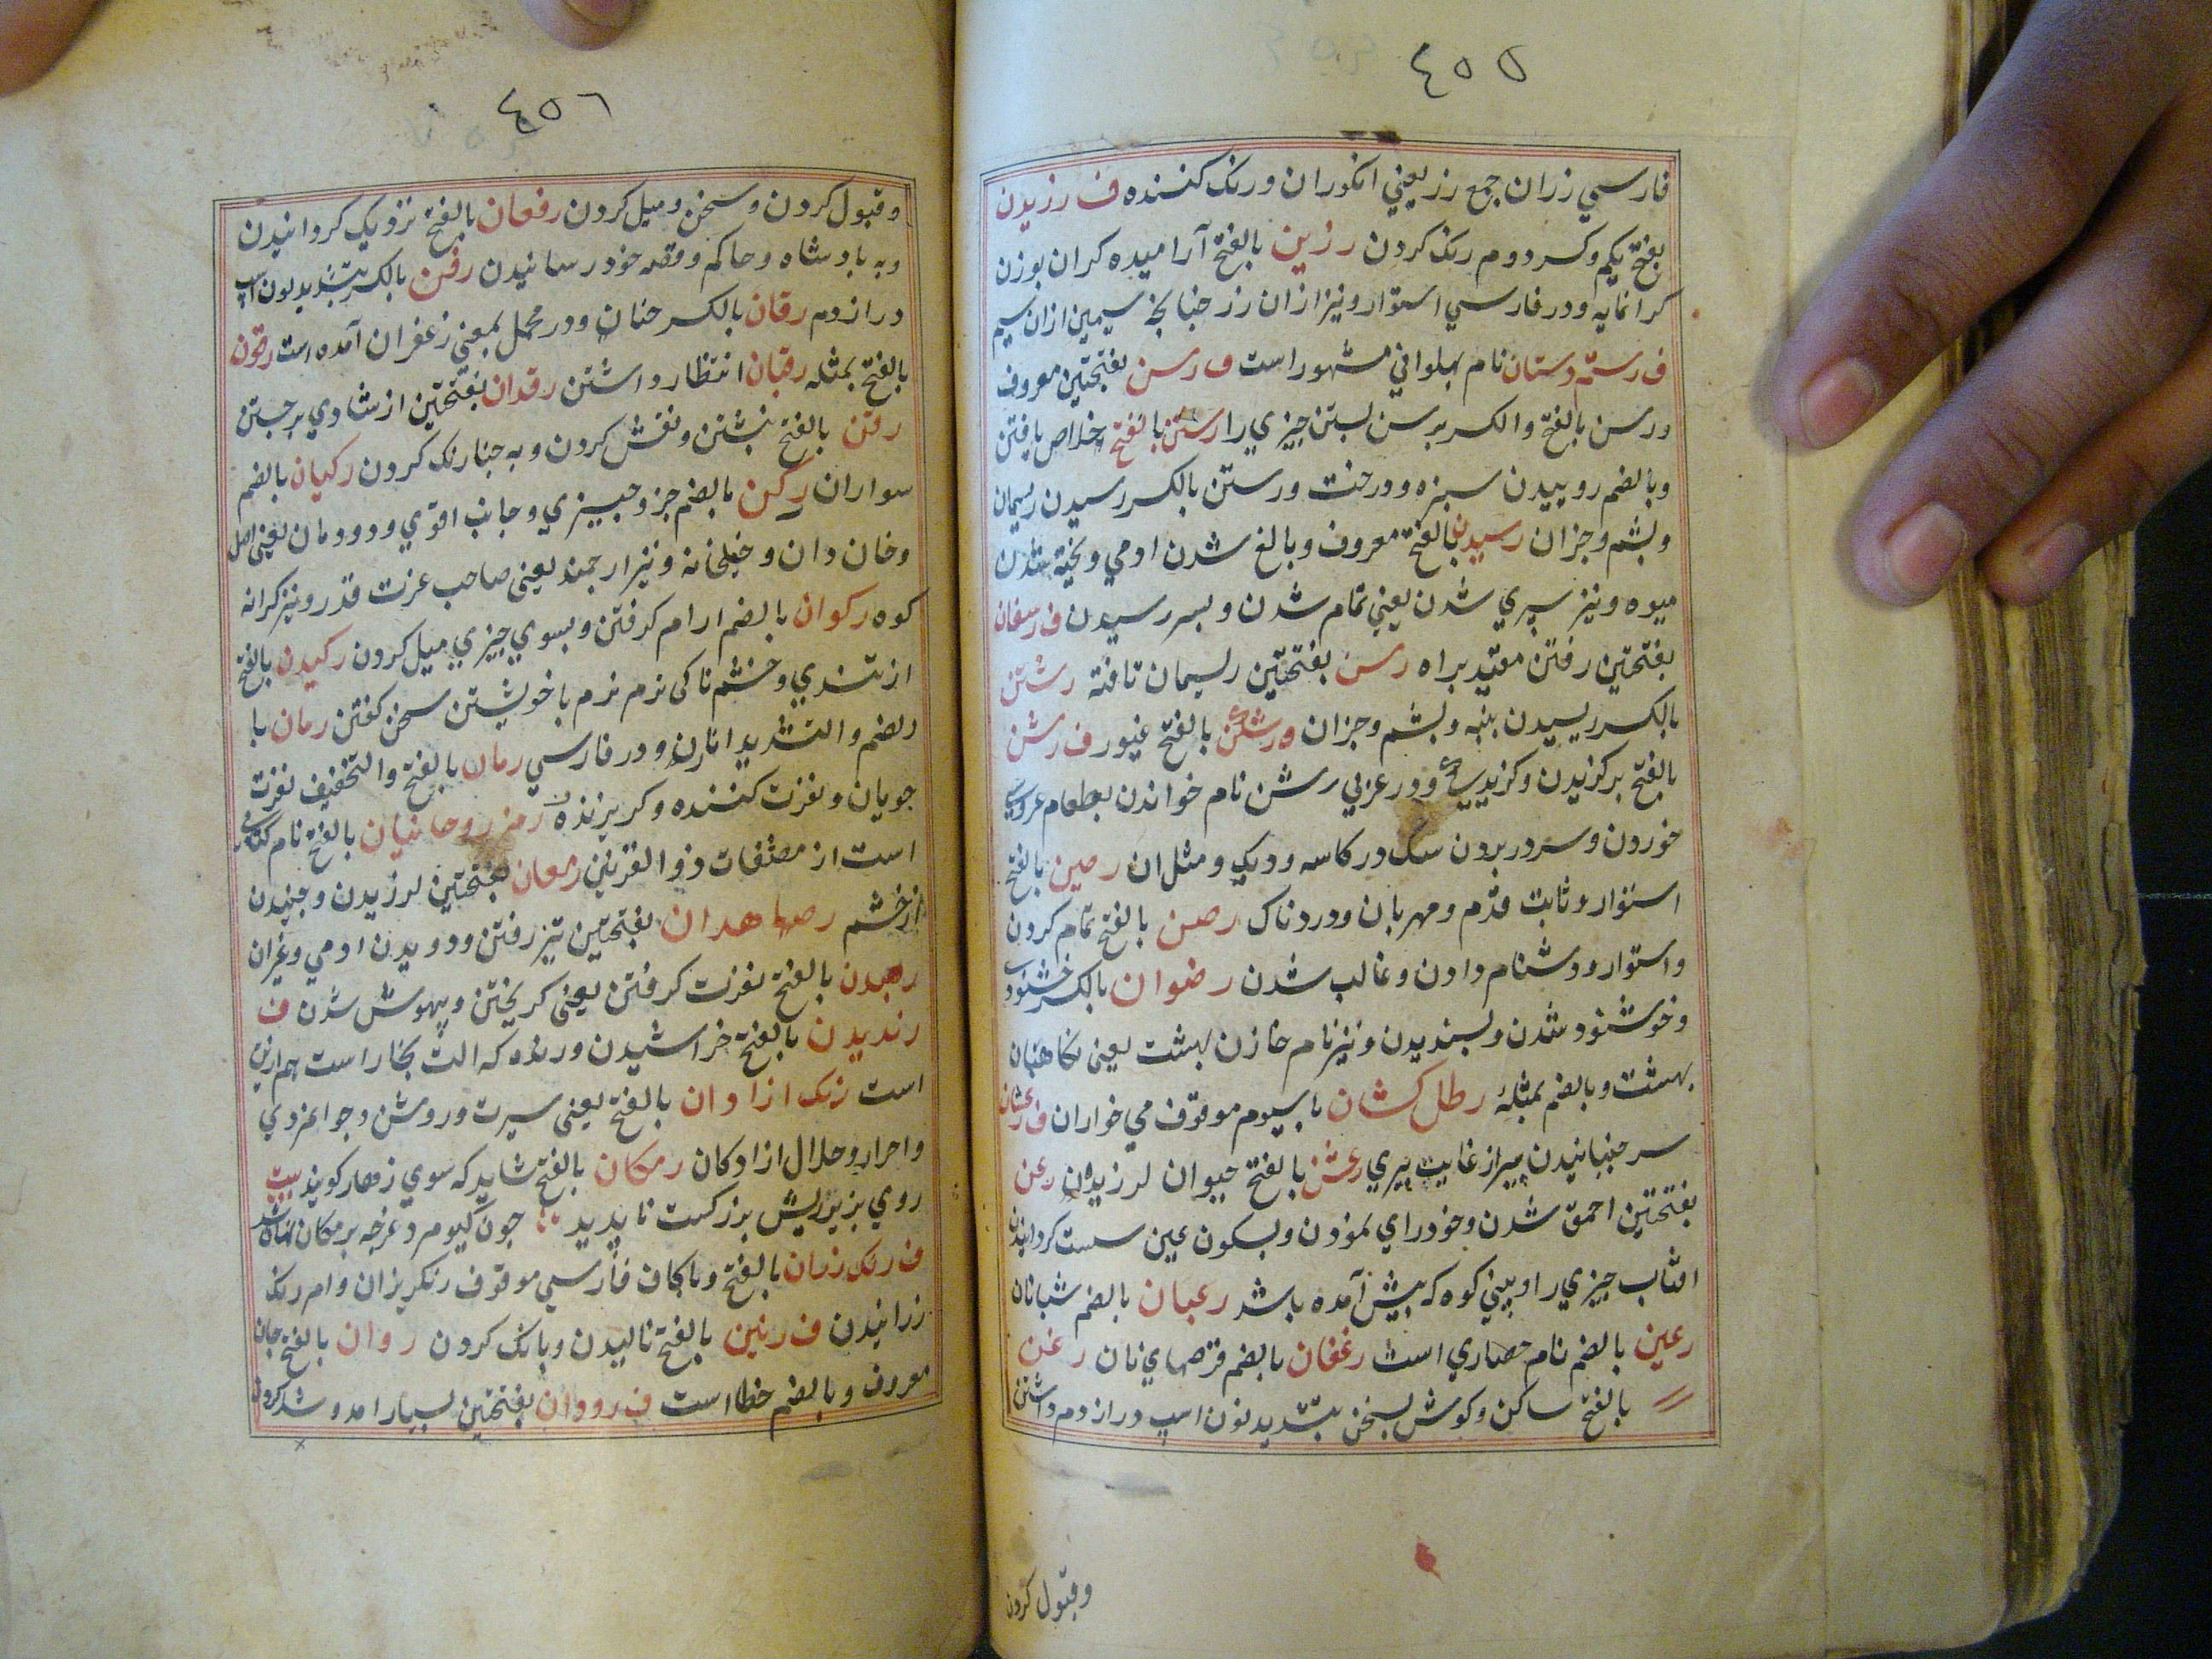 ٤٥٥
فارسي رزان جمع رز يعني انكوران ورنك كننده ف رزيدن
بفتح يكم وكسر دوم رنك كردن رزين بالفتح آراميده كران بوزن
كرانمايه ودر فارسي استوار ونيز ازان رز چنانچه سيمين ازان سيم
ف رستم دستان نام پهلواني مشهور است ف رسن بفتحتين معروف
ورسن بالفتح والكسر برسن بستن چيزي را رستن بالفتح خلاص يافتن
وبالضم روييدن سبزه ودرخت ورستن بالكسر رسيدن ريسمان
وپشم وجزان رسيدن بالفتح معروف وبالغ شدن ادمي وپخته شدن
ميوه ونيز سپري شدن يعني تمام شدن وبسر رسيدن ف رسفان
بفتحتين رفتن مقيد براه رسن بفتحتين ريسمان تافته رشتن
بالكسر ريسيدن پنبه وپشم وجزان رشكن بالفتح غيور ف رشن
بالفتح بركزيدن وكزيدن ودر عربي رشن نام خواندن بطعام عروسي
خوردن وسر در بردن سك در كاسه وديك ومثل ان رصين بالفتح
استوار وثابت قدم ومهربان ودردناك رصن بالفتح تمام كردن
واستوار ودشنام دادن وغالب شدن رضوان بالكسر خشنودي
وخوشنود شدن وپسنديدن ونيز نام خازن بهشت يعني نكاهبان
بهشت وبالضم بمثله رطل كشان با سيوم موقوف مي خواران ف رعشان
سر جنبانيدن پير از غايت پيري رعشن بالفتح حيوان لرزيدن رعن
بفتحتين احمق شدن وخودراي نمودن وبسكون عين سست كردانيدن
افتاب چيزي را وبيني كوه كه پيش آمده باشد رعيان بالضم شبانان
رعين بالضم نام حصاري است رغفان بالضم قرصهاي نان رغن
بالفتح ساكن وكوش بسخن بتشديد نون اسپ دراز دم داشتن
وقبول كردن
٤٥٦
وقبول كردن وسخن وميل كردن رفعان بالفتح نزديك كردانيدن
وبه بادشاه وحاكم وقصه خود رسانيدن رفن بالكسر بتشديد نون اسپ
دراز دم رقان بالكسر حنان ودر مجمل بمعني زعفران آمده است رقون
بالفتح بمثله رقبان انتظار داشتن رقدان بفتحتين از شادي برجستن
رقن بالفتح نبشتن ونقش كردن وبه حنا رنك كردن ركبان بالضم
سواران ركن بالضم جزو چيزي وجانب اقوي ودودمان يعني اصل
وخان دان وخيلخانه ونيز ارجمند يعني صاحب عزت قدر ونيز كرانه
كوه ركوان بالضم ارام كرفتن وبسوي چيزي ميل كردن ركيدن بالفتح
از تندي وخشم ناكي نرم نرم با خويشتن سخن كفتن رمان با
لضم والتشديد انارن ودر فارسي رمان بالفتح والتخفيف نفرت
جويان ونفرت كننده وكريزنده رمز روحانيان بالفتح نام كتابي
است از مصنفات ذو القرنين رمعان بفتحتين لرزيدن وجنبدن
از خشم رصاهدان بفتحتين تيز رفتن ودويدن ادمي وغيران
رمبدن بالفتح نفرت كرفتن يعني كريختن وبيهوش شدن ف
رنديدن بالفتح خراشيدن ورنده كه الت نجار است هم ازين
است رنك ازادان بالفتح يعني سيرت وروشن وجوانمردي
واحرار وحلال ازادكان رمكان بالفتح شايد كه سوي زهار كويند بيت
روي بزير ريش بزركست ناپديد چون كيومرد غرچه برمكان نهان شد
ف رنك رزان بالفتح وباكاف فارسي موقوف رنكريزان وامر رنك
رزانيدن ف رنين بالفتح ناليدن وبانك كردن روان بالفتح جان
معروف وبالضم خطا است ف رودان بفتحتين بسيار امد وشد كردن